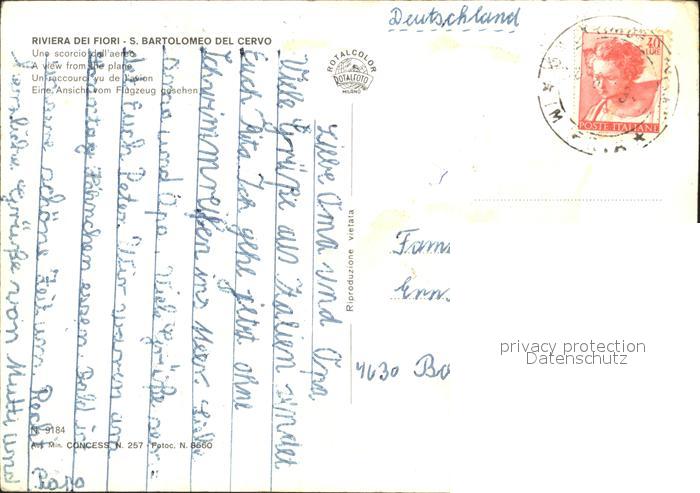 Deutschland
RIVIERA DEI FIORI - S. BARTOLOMEO DEL CERVO
Uno scorcio dall'aereo
A view from the plane
Un raccourci vu de l'avion
Eine Ansicht vom Flugzeug gesehen
ROTALCOLOR
ROTALFOTO
MILANO
40
LIRE
POSTE ITALIANE
Liebe Oma und Opa,
Viele Grüße aus Italien sendet
Euch Rita. Ich gehe jetzt ohne
Schwimmreifen ins Meer. Liebe
Oma und Opa, Viele Grüße
Euch Peter. Wir waren am
Sonntag Hähnchen essen. Bald ist
unsere schöne Zeit um. Recht
herzliche Grüße von Mutti und
Papa
Riproduzione vietata
4630 Bo
privacy protection
Datenschutz
N. 9184
Aut. Min. CONCESS. N. 257 - Fotoc. N. 8660